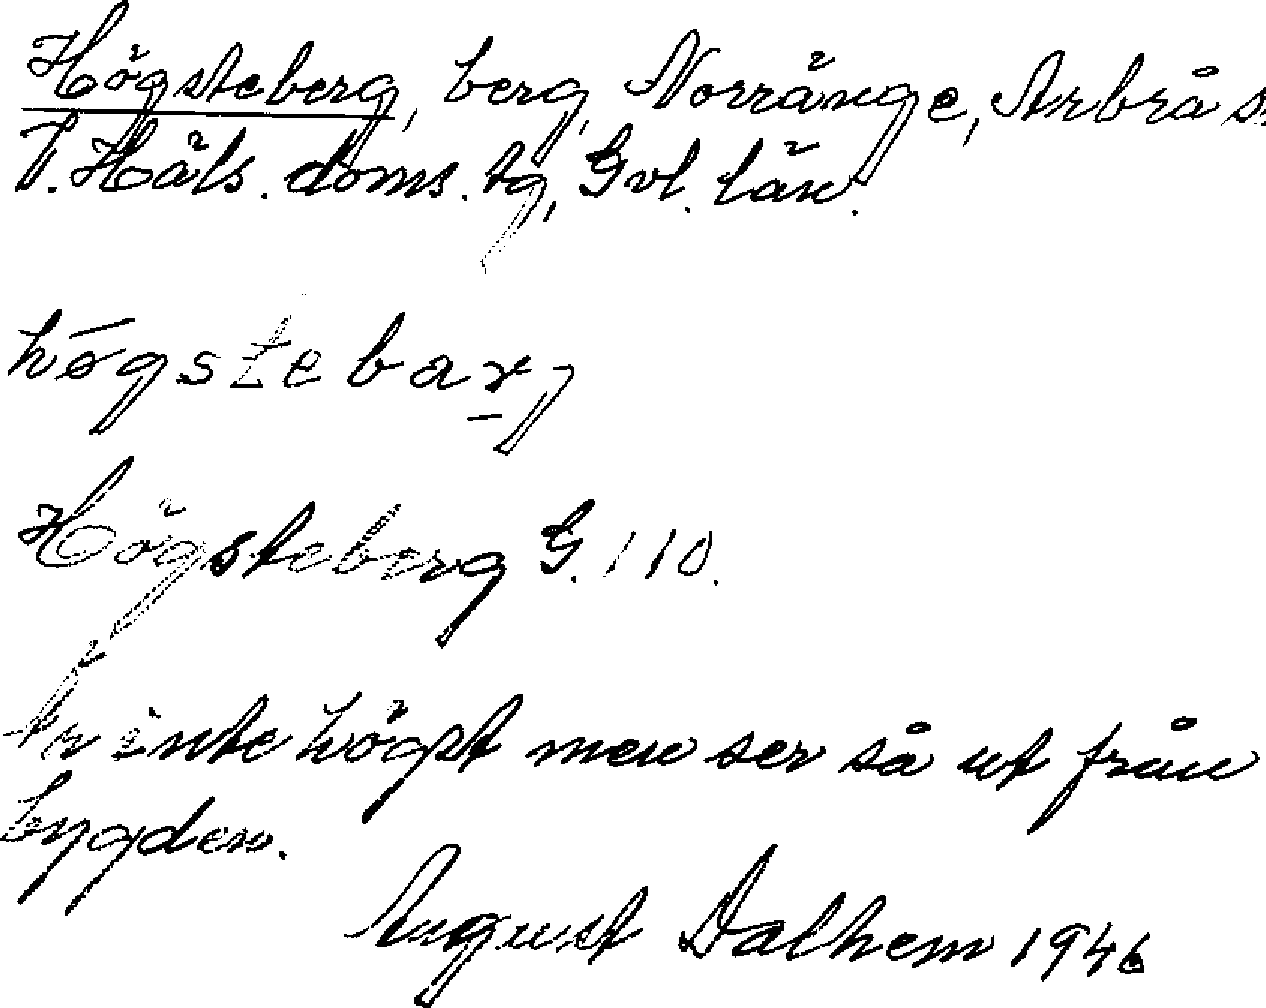 Högsteberg, berg, Norränge, Arbrå s
V. Häls. doms. tg, Gvl. län.
hōgstebarg
Högsteberg G. 110.
Är inte högst men ser så ut från
bygden.
August Dalhem 1946